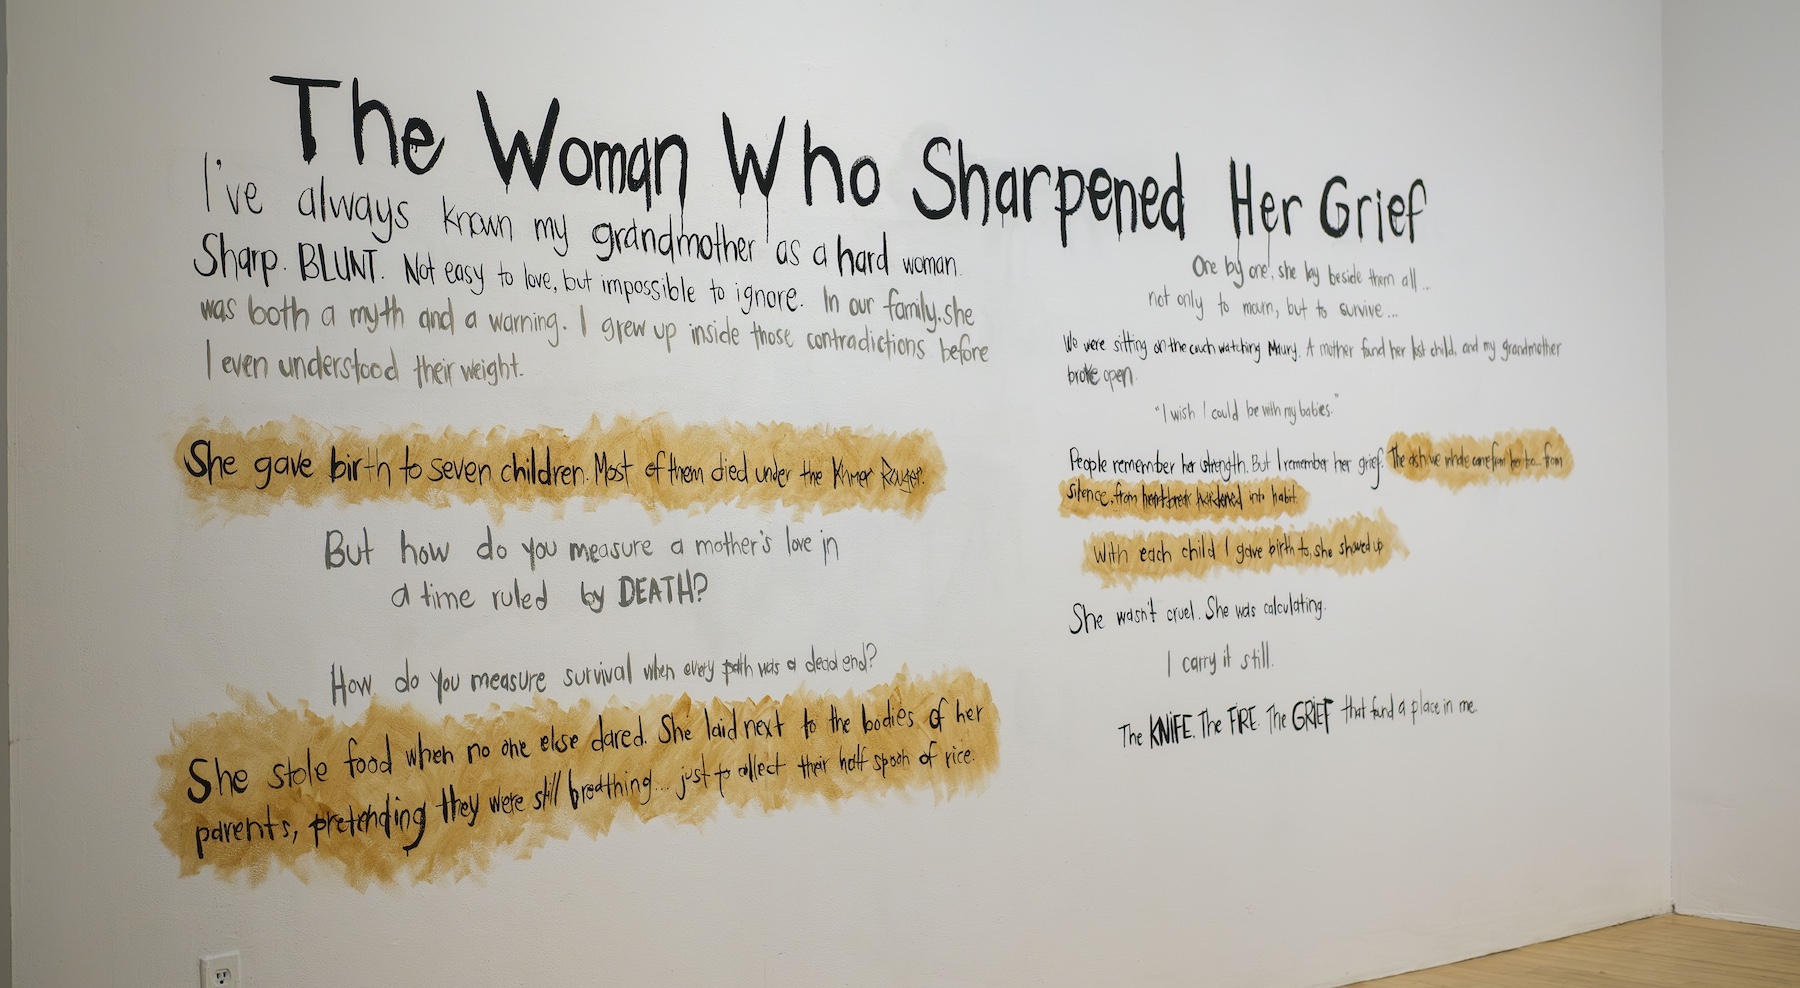 The Woman Who Sharpened Her Grief
I've always known my grandmother as a hard woman.
Sharp. BLUNT. Not easy to love, but impossible to ignore. In our family, she
was both a myth and a warning. I grew up inside those contradictions before
I even understood their weight.
She gave birth to seven children. Most of them died under the Khmer Rouge.
But how do you measure a mother's love in
a time ruled by DEATH?
How do you measure survival when every path was a dead end?
She stole food when no one else dared. She laid next to the bodies of her
parents, pretending they were still breathing... just to collect their half spoon of rice.
One by one, she lay beside them all...
not only to mourn, but to survive...
We were sitting on the couch watching Maury. A mother found her lost child, and my grandmother
broke open.
"I wish I could be with my babies."
People remember her strength. But I remember her grief. The ash we inhale came from her too... from
silence, from heartbreak hardened into habit.
With each child I gave birth to, she showed up
She wasn't cruel. She was calculating.
I carry it still.
The KNIFE. The FIRE. The GRIEF that found a place in me.